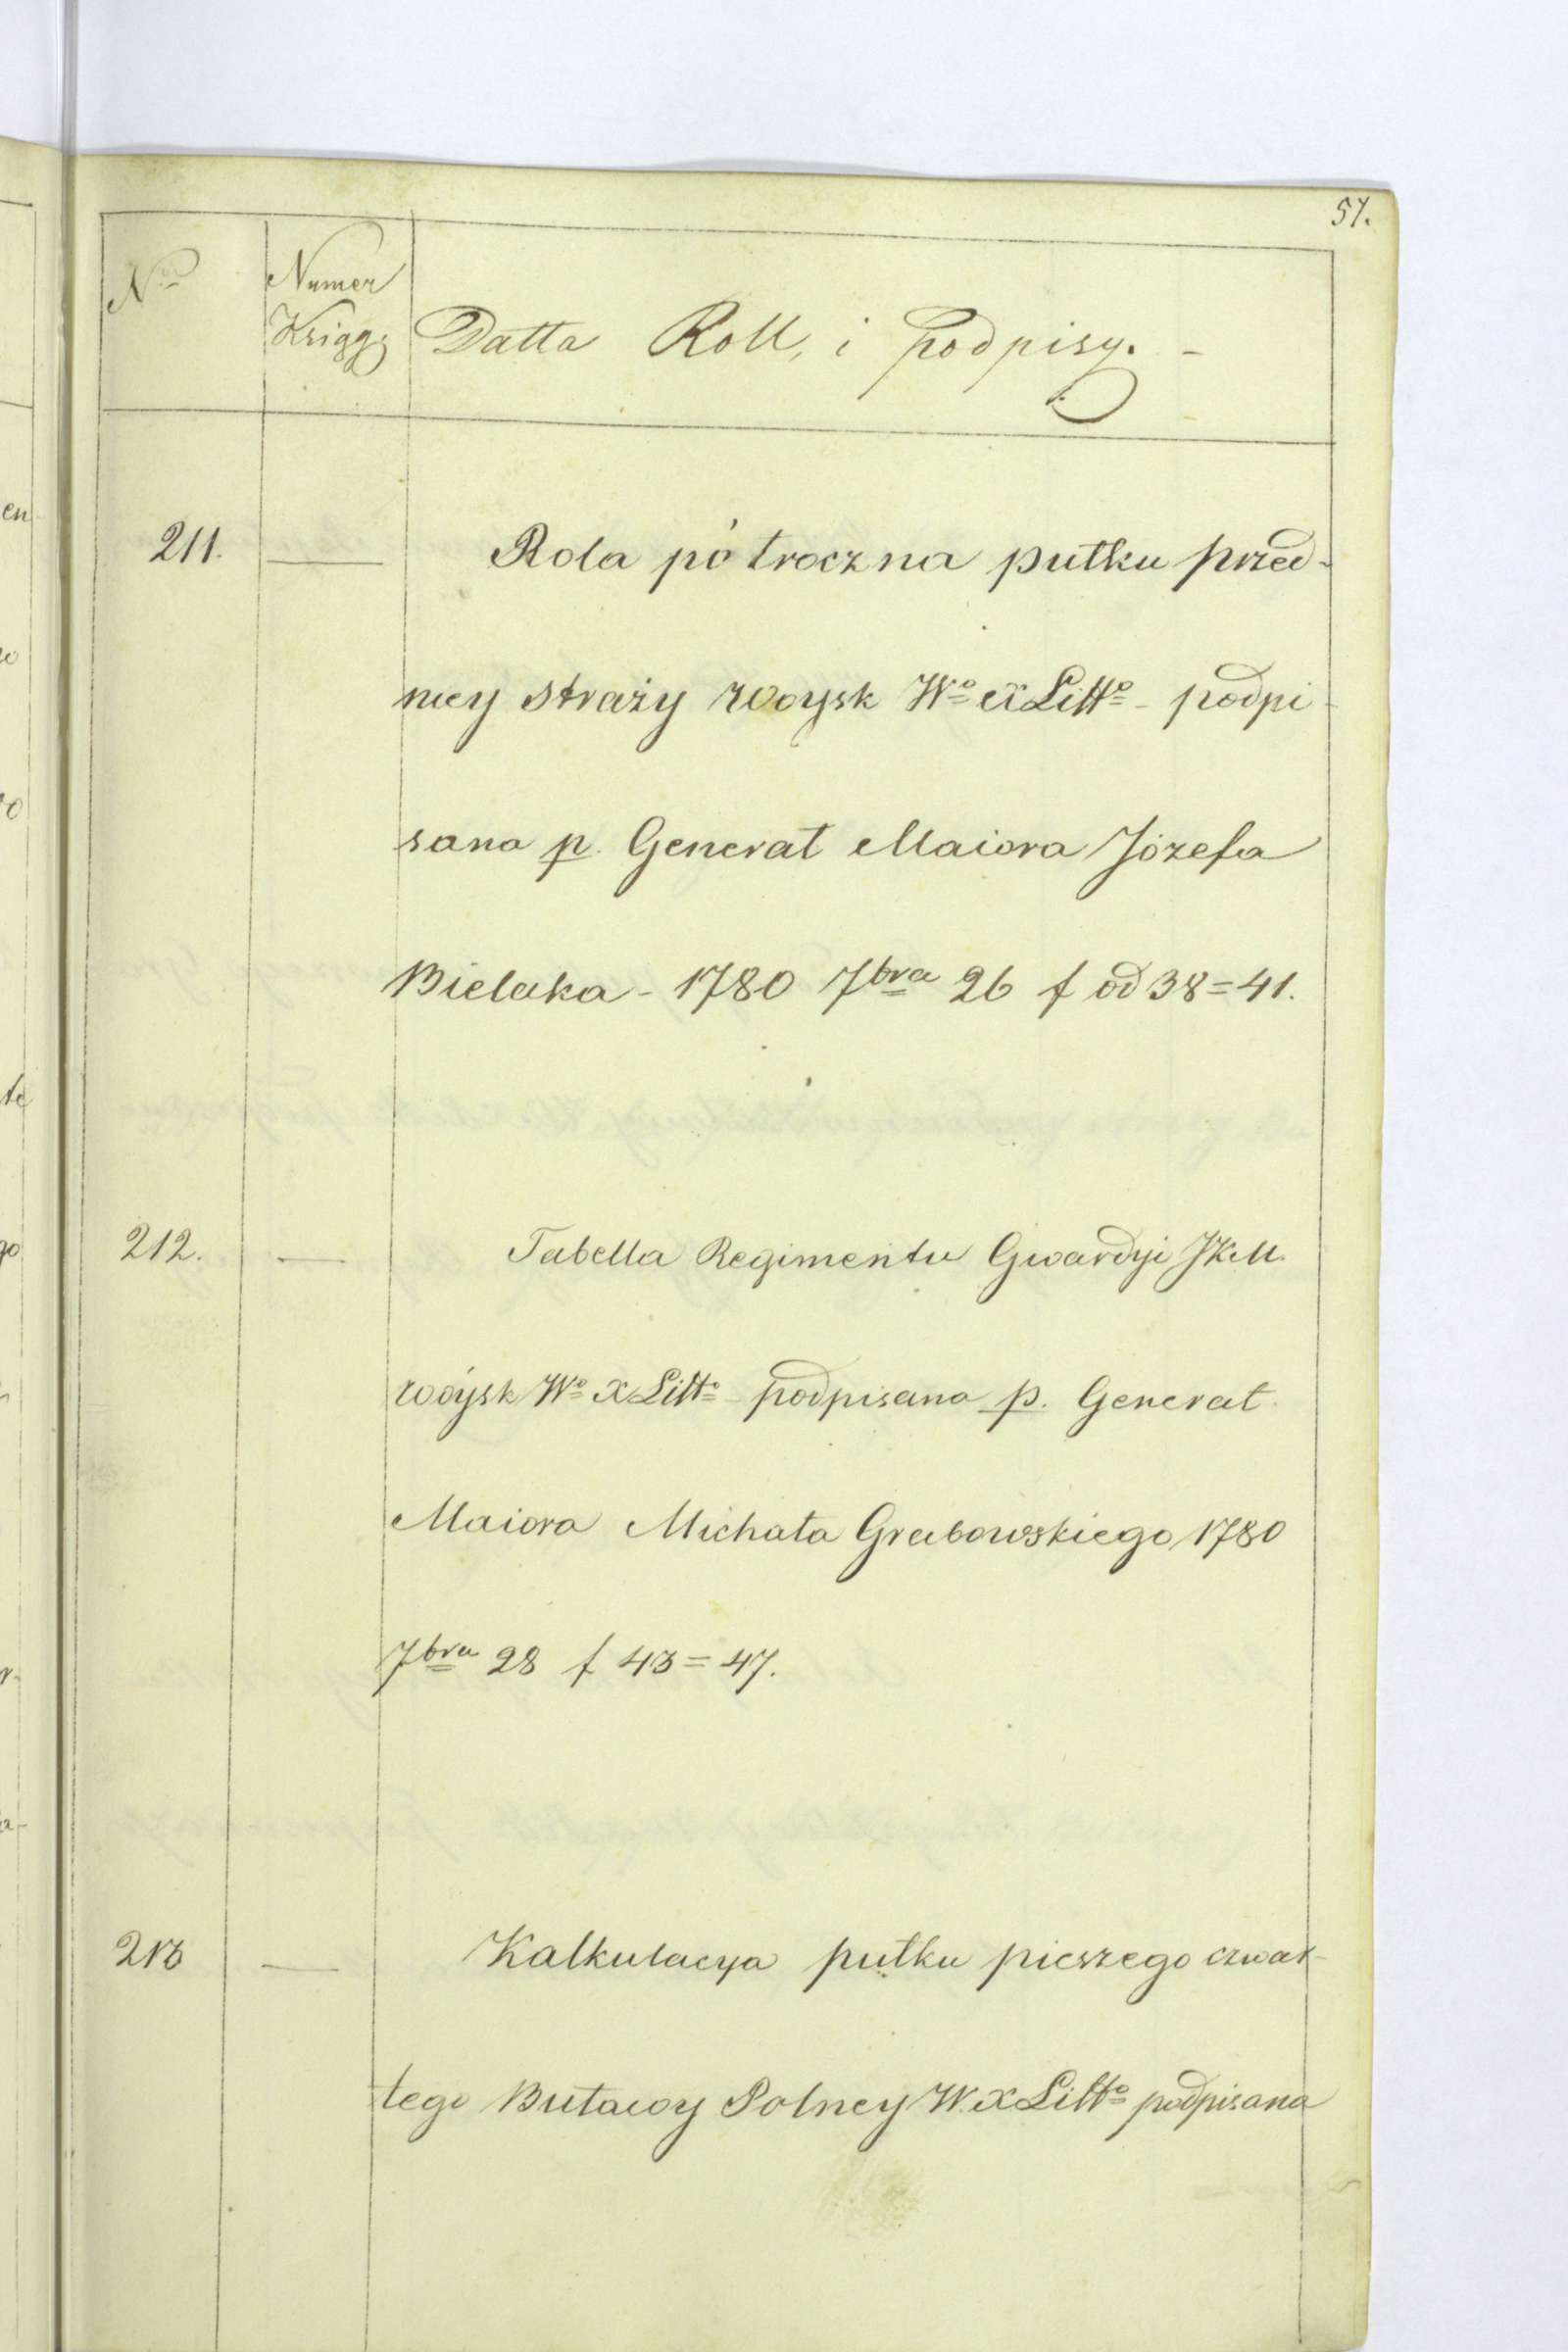 57.
Nro
Numer
Xsiąg
Datta Roll, i podpisy. -
211. — Rola pó troczna pułku przed-
niey straży woysk Wo X Litto - podpi-
sana p. Generał Maiora Józefa
Bielaka - 1780 7bra 26 f od 38=41.
212. — Tabella Regimentu Gwardyi JKM.
wóysk Wo X Litto podpisana p. Generał
Maiora Michała Grabowskiego 1780
7bra 28 f 43=47.
213 — Kalkulacya pułku pieszego czwar-
tego Buławy Polney W. X Litto podpisana